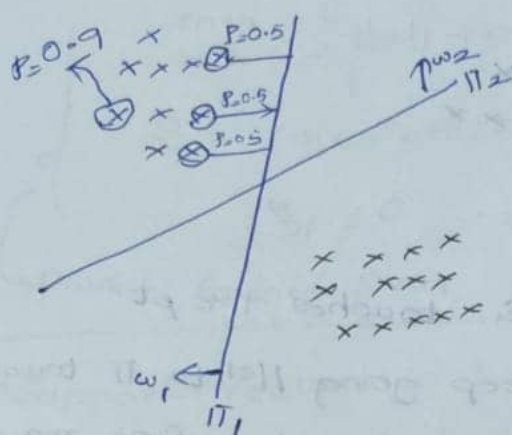 P=0.9
P=0.5
P=0.5
P=0.5
w2
π2
w1
π1